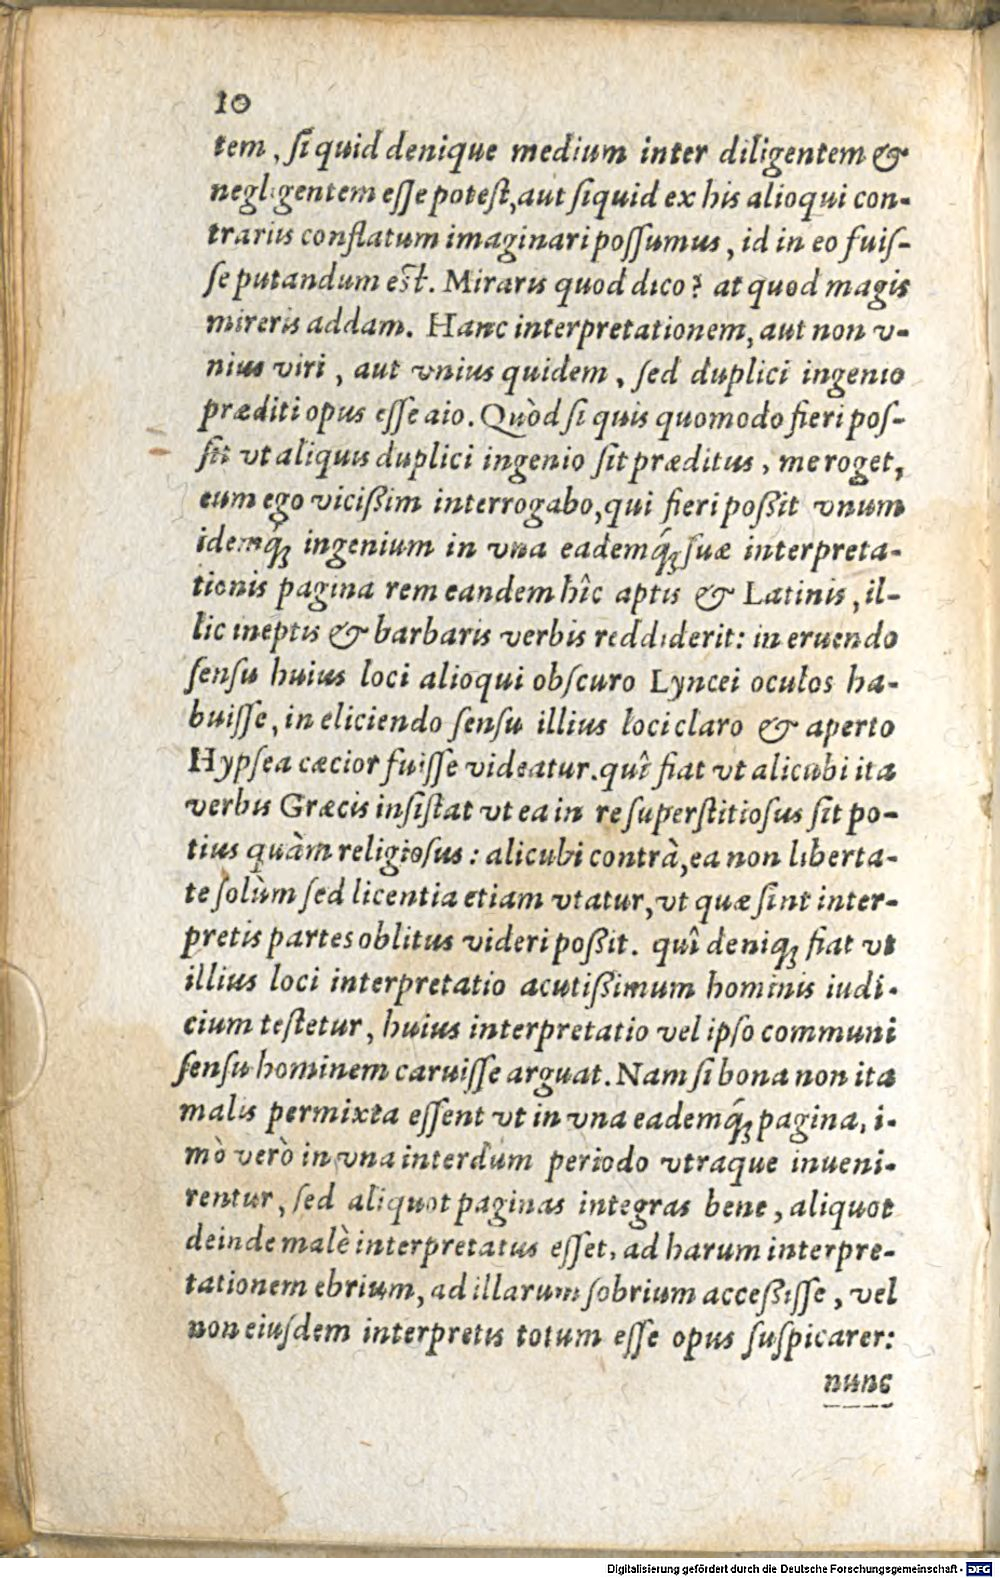 10
tem, ſi quid denique medium inter diligentem &
negligentem eſſe poteſt, aut ſiquid ex his alioqui con-
trariis conflatum imaginari poſſumus, id in eo fuiſ-
ſe putandum eſt. Miraris quod dico? at quod magis
mireris addam. Hanc interpretationem, aut non v-
nius viri, aut vnius quidem, ſed duplici ingenio
præditi opus eſſe aio. Quòd ſi quis quomodo fieri poſ-
ſit vt aliquis duplici ingenio ſit præditus, me roget,
eum ego vicißim interrogabo, qui fieri poßit vnum
idemq́; ingenium in vna eademq́; ſuæ interpreta-
tionis pagina rem eandem hîc aptis & Latinis, il-
lic ineptis & barbaris verbis reddiderit: in eruendo
ſenſu huius loci alioqui obſcuro Lyncei oculos ha-
buiſſe, in eliciendo ſenſu illius loci claro & aperto
Hypſea cæcior fuiſſe videatur. quî fiat vt alicubi ita
verbis Græcis inſiſtat vt ea in re ſuperſtitioſus ſit po-
tius quàm religioſus: alicubi contrà, ea non liberta-
te ſolùm ſed licentia etiam vtatur, vt quæ ſint inter-
pretis partes oblitus videri poßit. quî deniq; fiat vt
illius loci interpretatio acutißimum hominis iudi-
cium teſtetur, huius interpretatio vel ipſo communi
ſenſu hominem caruiſſe arguat. Nam ſi bona non ita
malis permixta eſſent vt in vna eademq́; pagina, i-
mò verò in vna interdum periodo vtraque inueni-
rentur, ſed aliquot paginas integras bene, aliquot
deinde malè interpretatus eſſet, ad harum interpre-
tationem ebrium, ad illarum ſobrium acceßiſſe, vel
non eiuſdem interpretis totum eſſe opus ſuſpicarer:
nunc
Digitalisierung gefördert durch die Deutsche Forschungsgemeinschaft - DFG